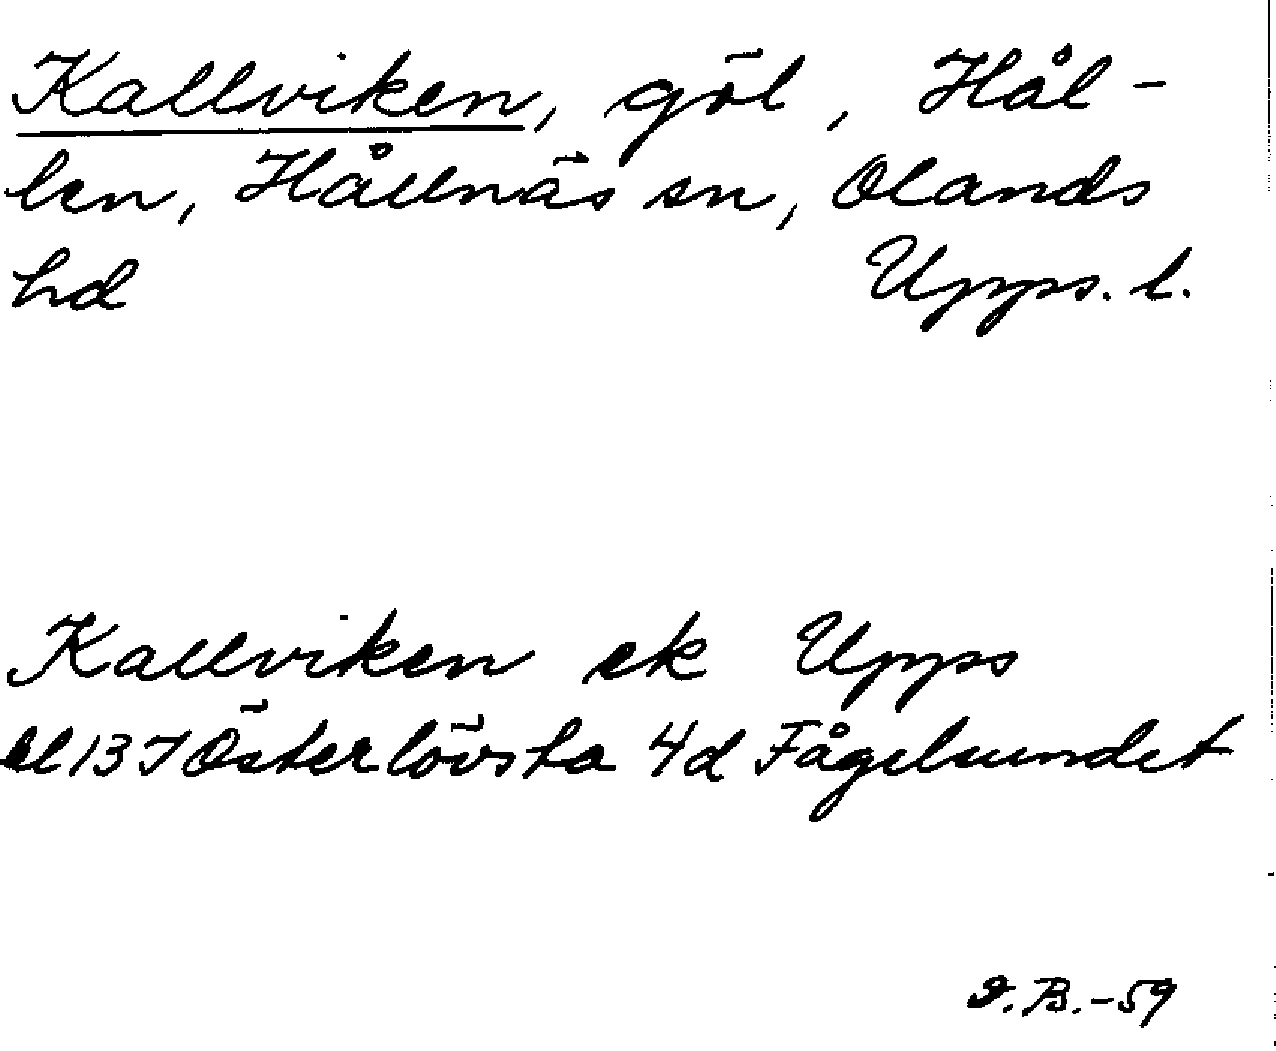 Kallviken, göl, Hål-
len, Hållnäs sn, Olands
hd Upps. l.
Kallviken ek Upps
bl 13 I Österlövsta 4d Fågelsundet
I.B.-59